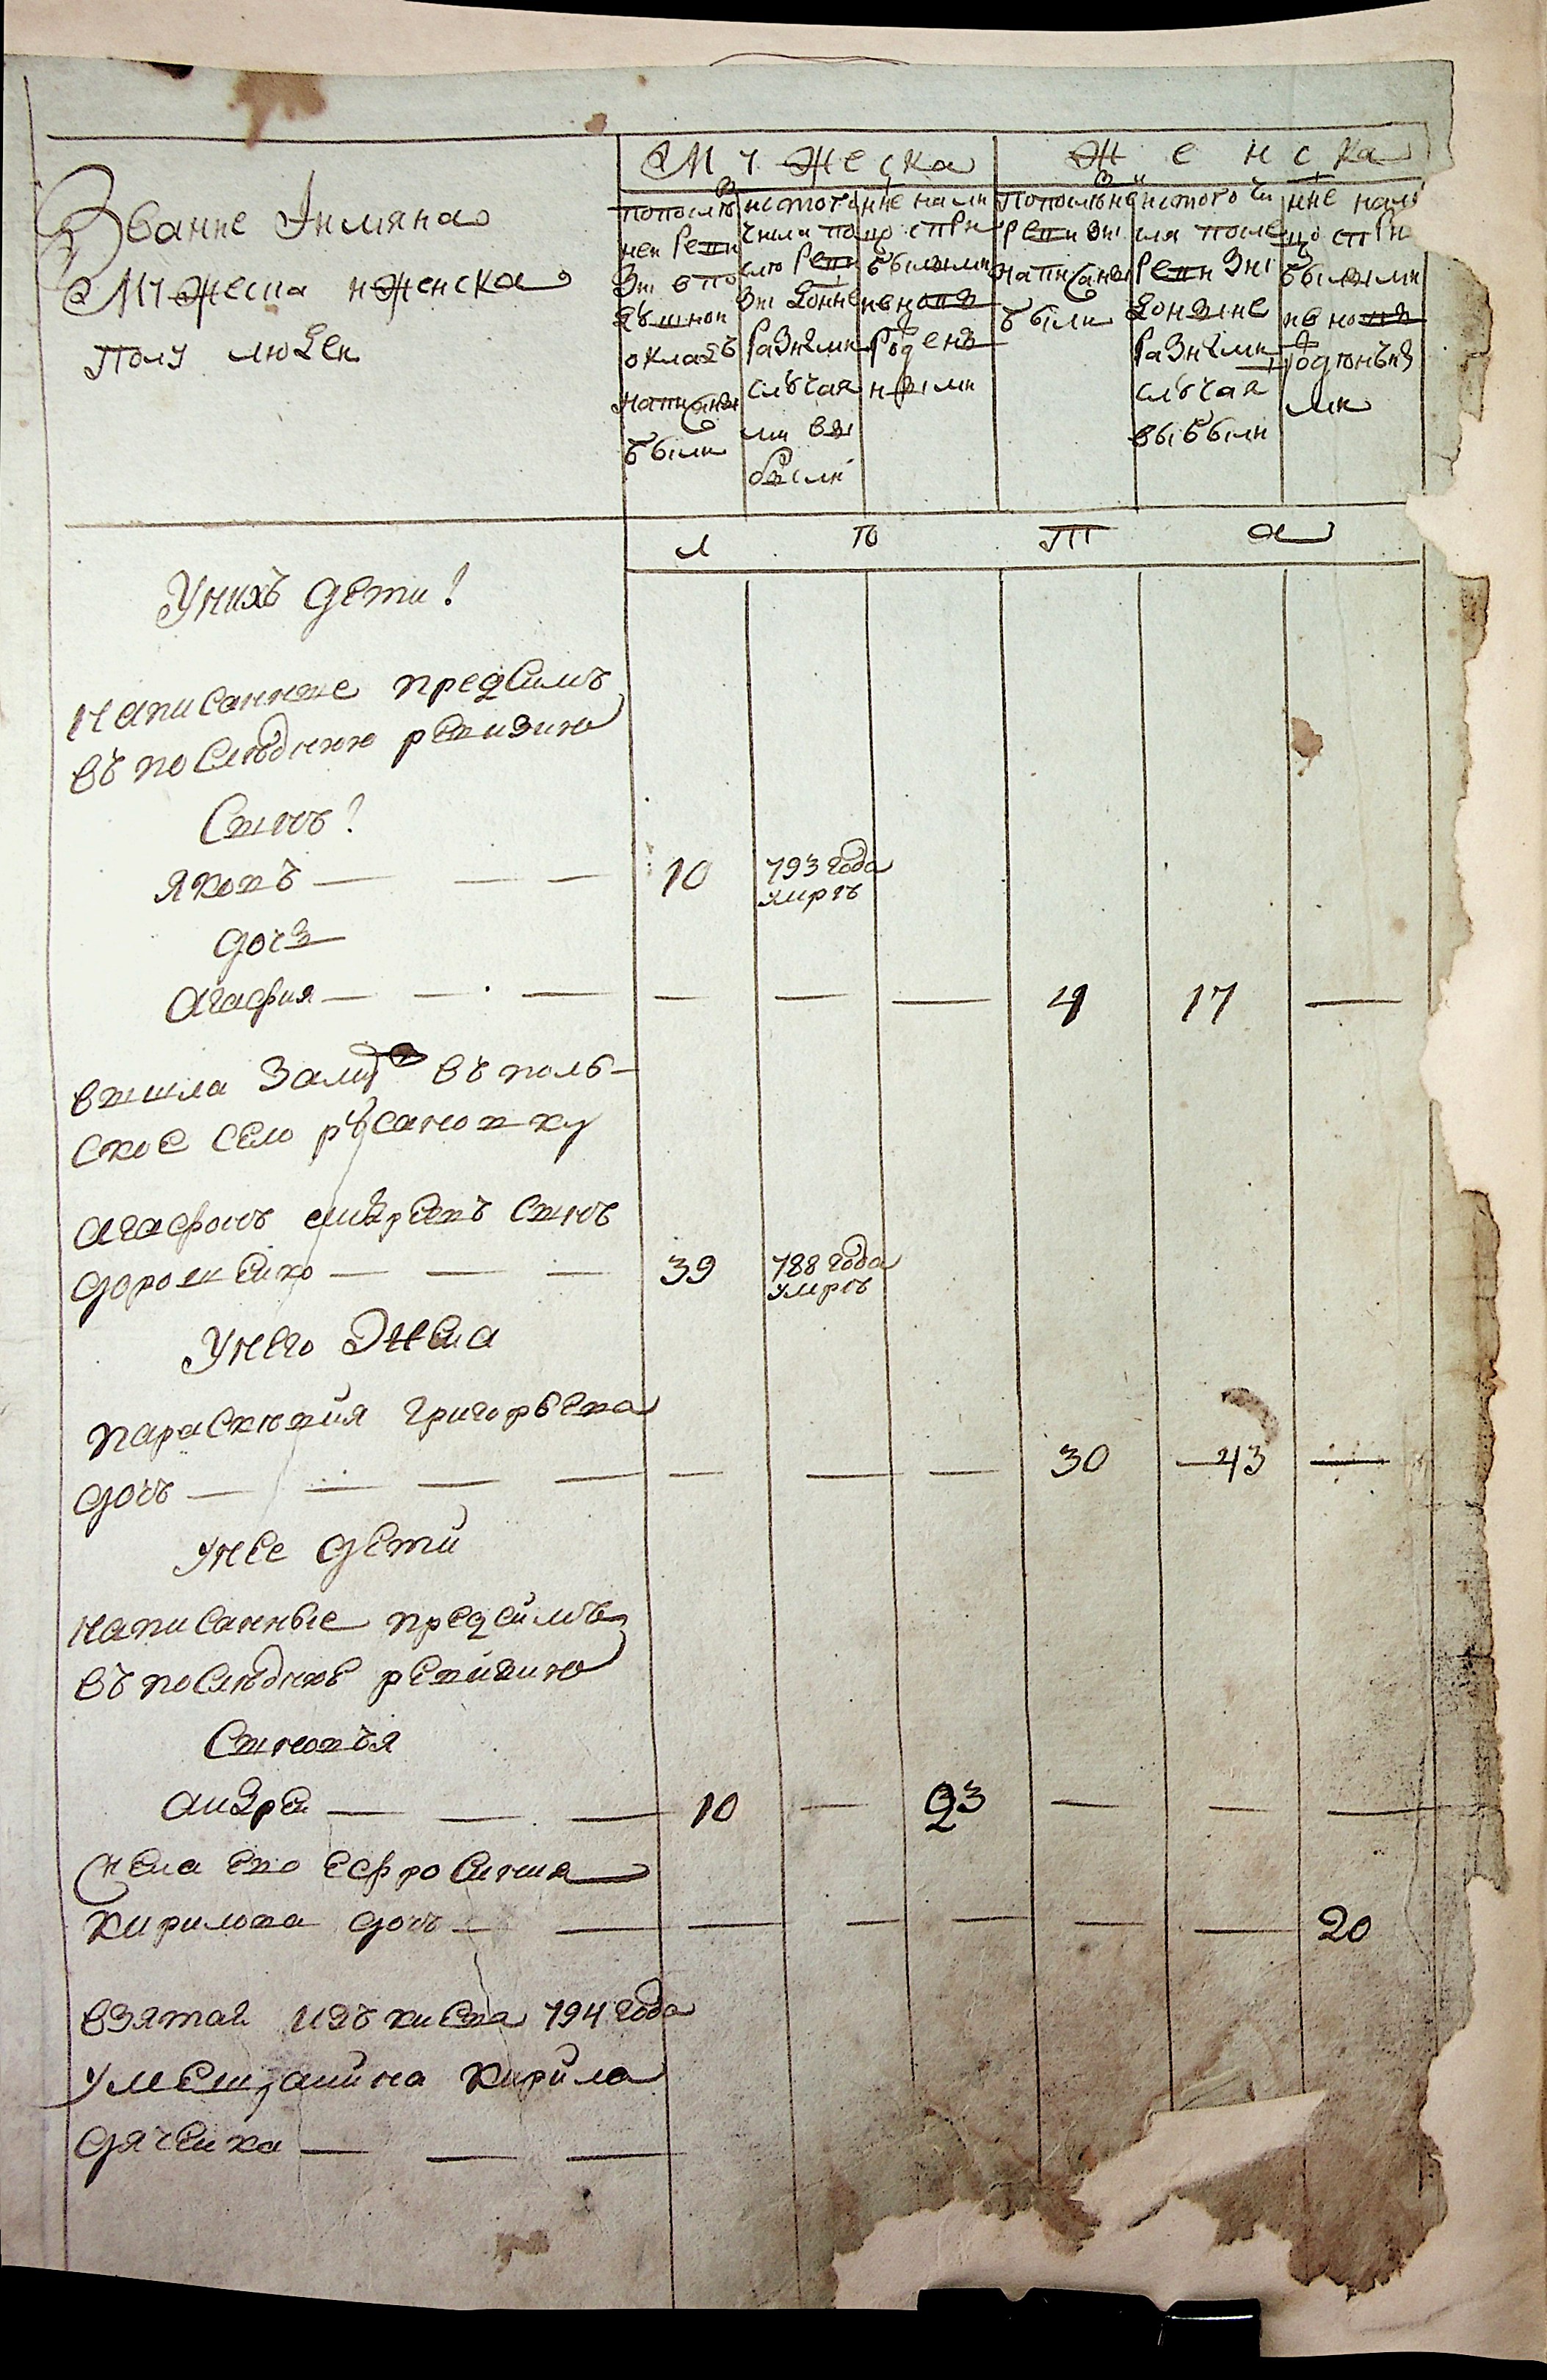 Звание Інмяна
Мужеска иЖенска
Полу людей
Мужеска
Женска
попослѣдней Ревизіи вподушной окладъ написаны были
истого числа послѣ Ревизіи до нне разными случаями выбыли
нне налицо сприбылыми ивновь рожденными
Попослѣдней Ревизіи написаны были
истого числа после Ревизіи до ныне разными случаями выбыли
нне налицо сприбылыми ивновь рожденными
лѣта
Унихъ дети!
написанные предсимъ
въ последнюю ревизию
Сынъ!
Яковъ — — — 10 793 года умръ
дочь
Агафия — — — — — — 4 17 —
вышла замуж въ поль-
ское село русановку
Агафонъ сынъ
дорошенко — — — 39 788 года умръ
Унего Жена
параскювия григорьева
дочь — — — — — — — 30 — 43 —
Унее дети
написанные предсимъ
въ последнюю ревизию
Сыновья
андрей — — — 10 — 23 — — —
жена ево ефросиния
кирилова дочь — — — — — — — 20
взятая изъ киева 794 года
умещанина кирила
дяченка — — —